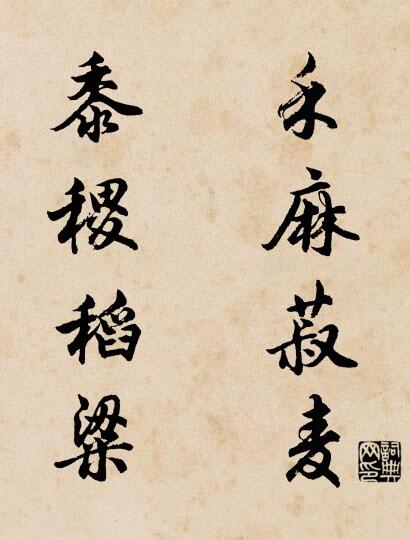 禾麻菽麦
黍稷稻粱
詞典网印